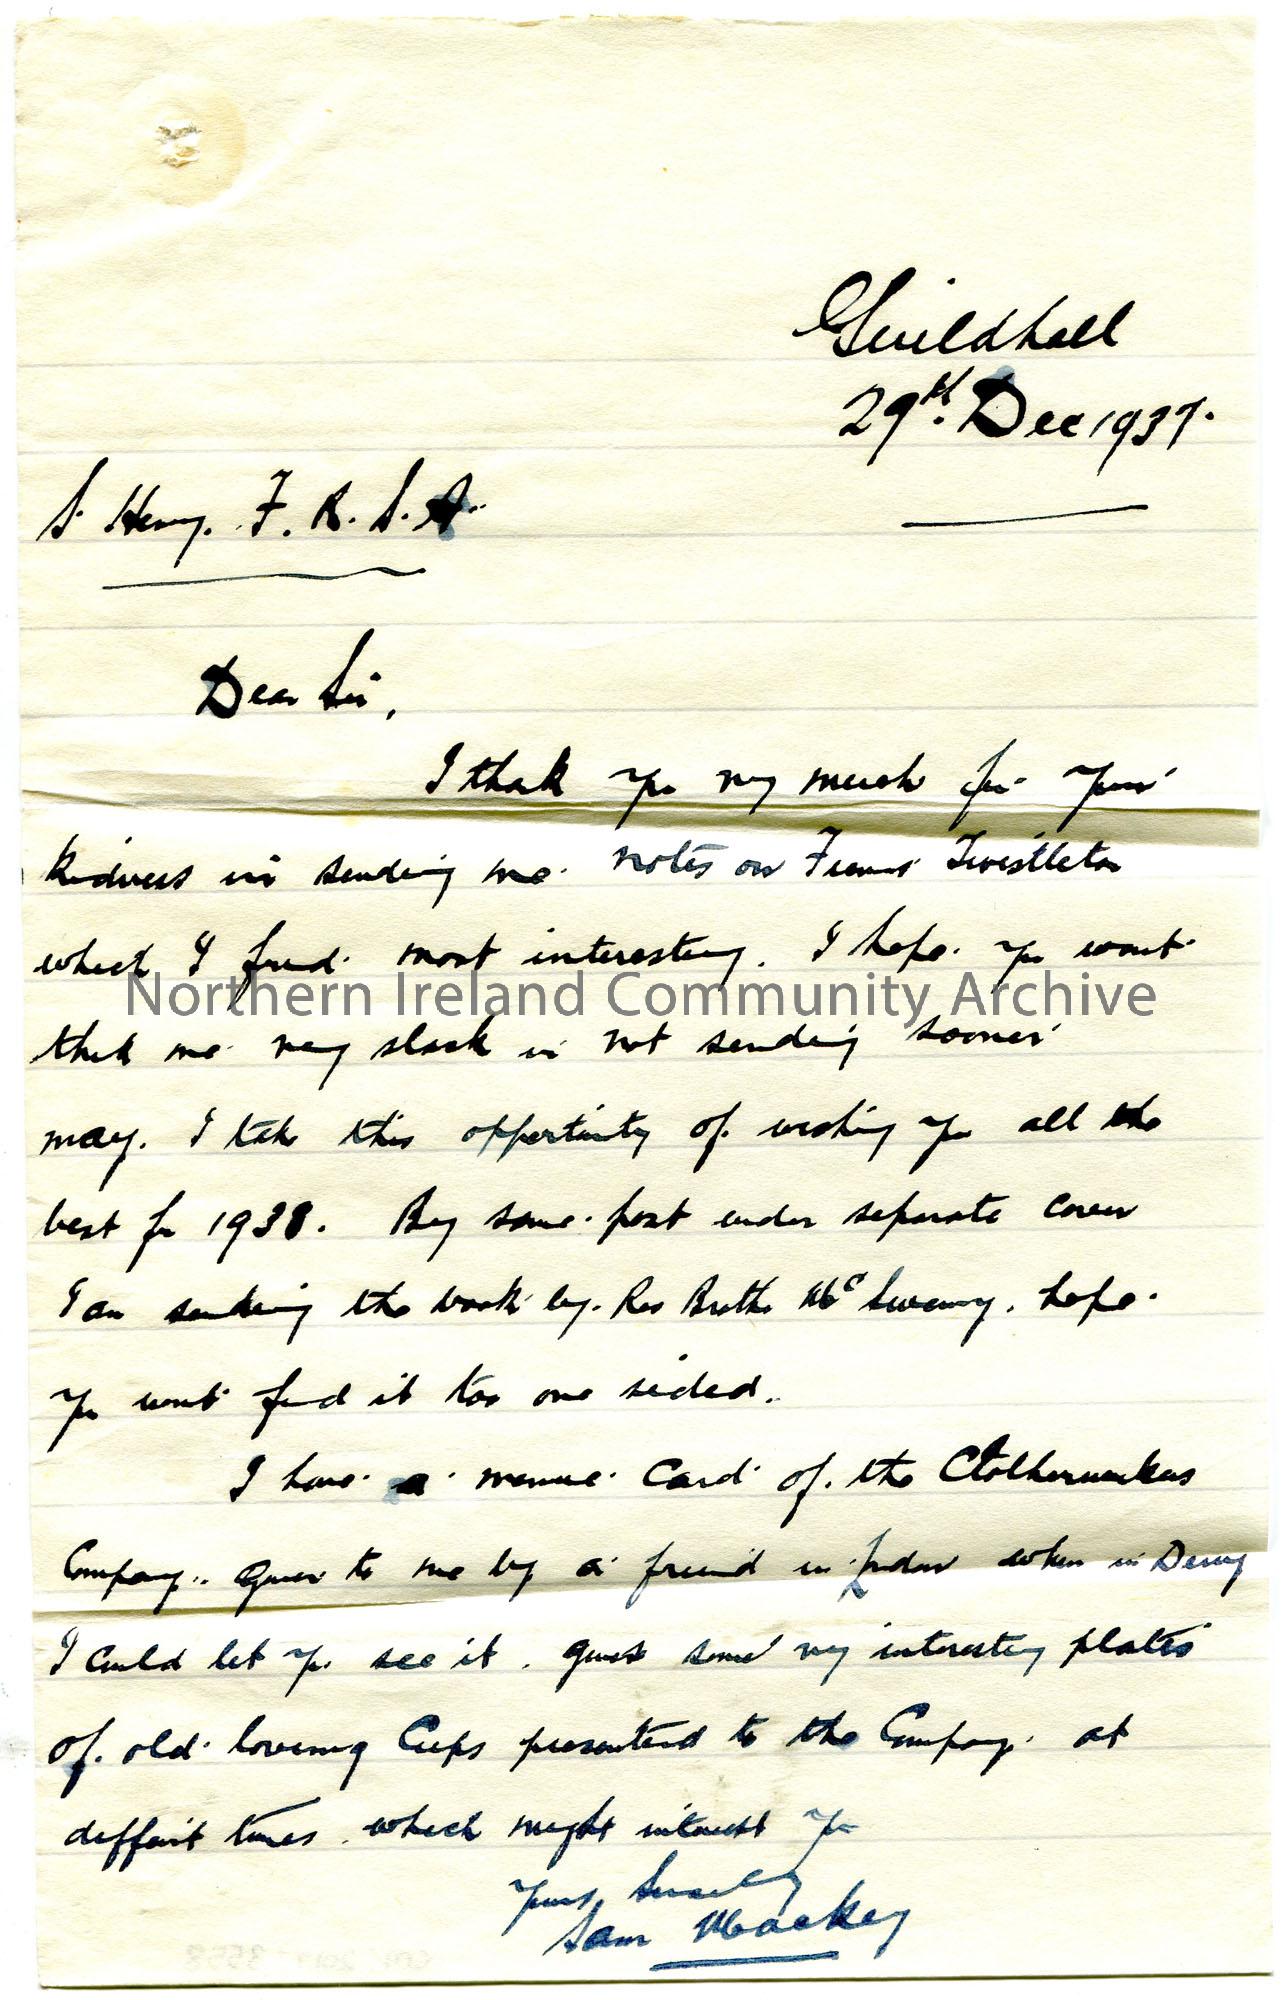 Guildhall
29th. Dec 1937.
S. Henry. F. R. S. A.
Dear Sir,
I thank you very much for your
kindness in sending me notes on Twistleton
which I find most interesting. I hope you wont
Northern Ireland Community Archive
think me very slack in not sending sooner
may. I take this opportunity of wishing you all the
best for 1938. By same post under separate cover
I am sending the book by. Rev Brother McSweeney, hope
you wont find it too one sided.
I have a menue card of the Clothworkers
Company.. given to me by a friend in London when in Derry
I could let you see it. gives some very interesting plates
of old loveing Cups presented to the Company at
different times. which might interest you
Yours Sincerely
Sam Mackey